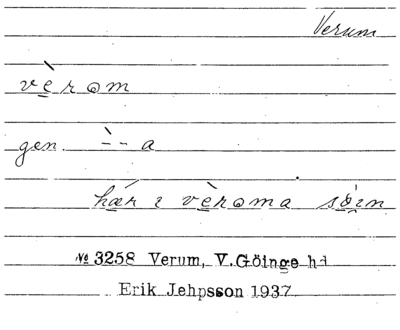 Verum
vèrom
gen. -̀ - a
hǽr i vèroma sò̱i̱n
№ 3258 Verum, V.Göinge hd
Erik Jehpsson 1937.